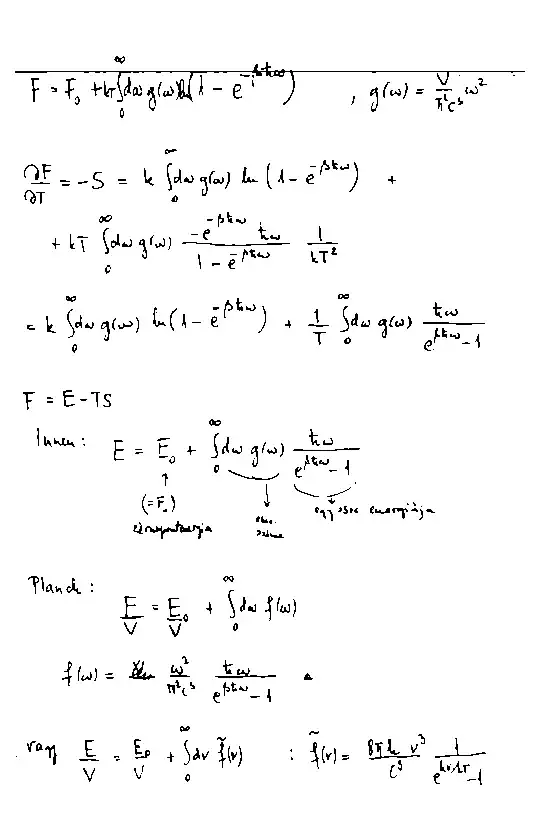 F = F₀ + kT ∫₀^∞ dω g(ω) ln(1 − e^{−βħω}) , g(ω) = V/(π²c³) ω²
∂F/∂T = −S = k ∫₀^∞ dω g(ω) ln(1 − e^{−βħω}) +
+ kT ∫₀^∞ dω g(ω) (−e^{−βħω} ħω)/(1 − e^{−βħω}) 1/(kT²)
= k ∫₀^∞ dω g(ω) ln(1 − e^{−βħω}) + 1/T ∫₀^∞ dω g(ω) ħω/(e^{βħω} − 1)
F = E − TS
Innen : E = E₀ + ∫₀^∞ dω g(ω) ħω/(e^{βħω} − 1)
(= F₀)
egy osc energiája
Planck :
E/V = E₀/V + ∫₀^∞ dω f(ω)
f(ω) = ω²/(π²c³) ħω/(e^{βħω} − 1)
vagy E/V = E₀/V + ∫₀^∞ dν f̃(ν) : f̃(ν) = 8πh ν³/c³ 1/(e^{hν/kT} − 1)